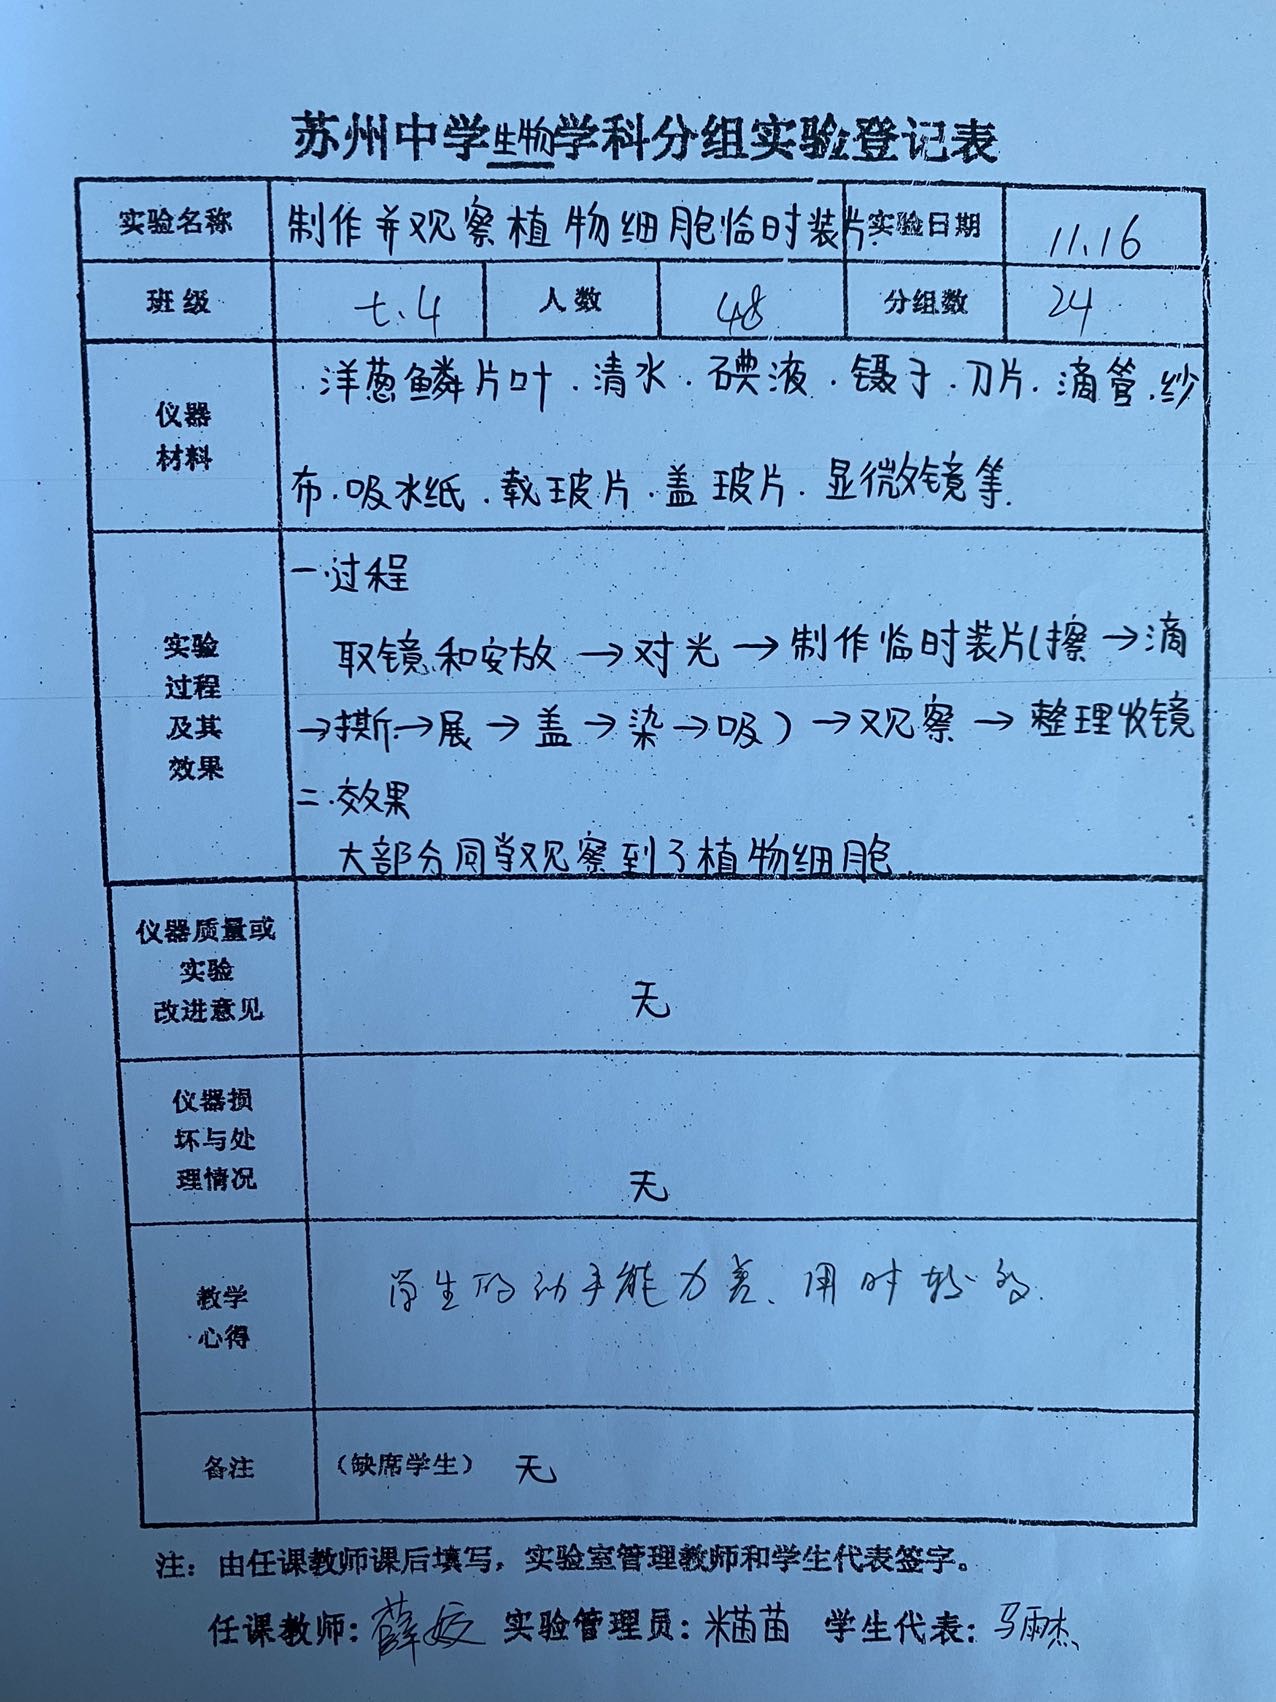 苏州中学生物学科分组实验登记表
实验名称 制作并观察植物细胞临时装片 实验日期 11.16
班级 七.4 人数 48 分组数 24
仪器材料 洋葱鳞片叶.清水.碘液.镊子.刀片.滴管.纱
布.吸水纸.载玻片.盖玻片.显微镜等.
实验过程及其效果
一.过程
取镜和安放→对光→制作临时装片(擦→滴
→撕→展→盖→染→吸)→观察→整理收镜
二.效果
大部分同学观察到了植物细胞
仪器质量或
实验
改进意见
无
仪器损
坏与处
理情况
无
教学
心得
学生的动手能力差、用时较多.
备注 (缺席学生) 无
注：由任课教师课后填写，实验室管理教师和学生代表签字。
任课教师：薛姣 实验管理员：苗苗 学生代表：马雨杰